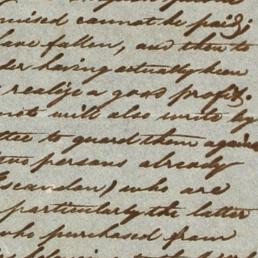 mised cannot be paid;
have fallen, and then to
der having actually been
realize a good profit.
not will also write by
tee to guard them against
two persons already
Escandon) who are
particularly the latter
who purchased from